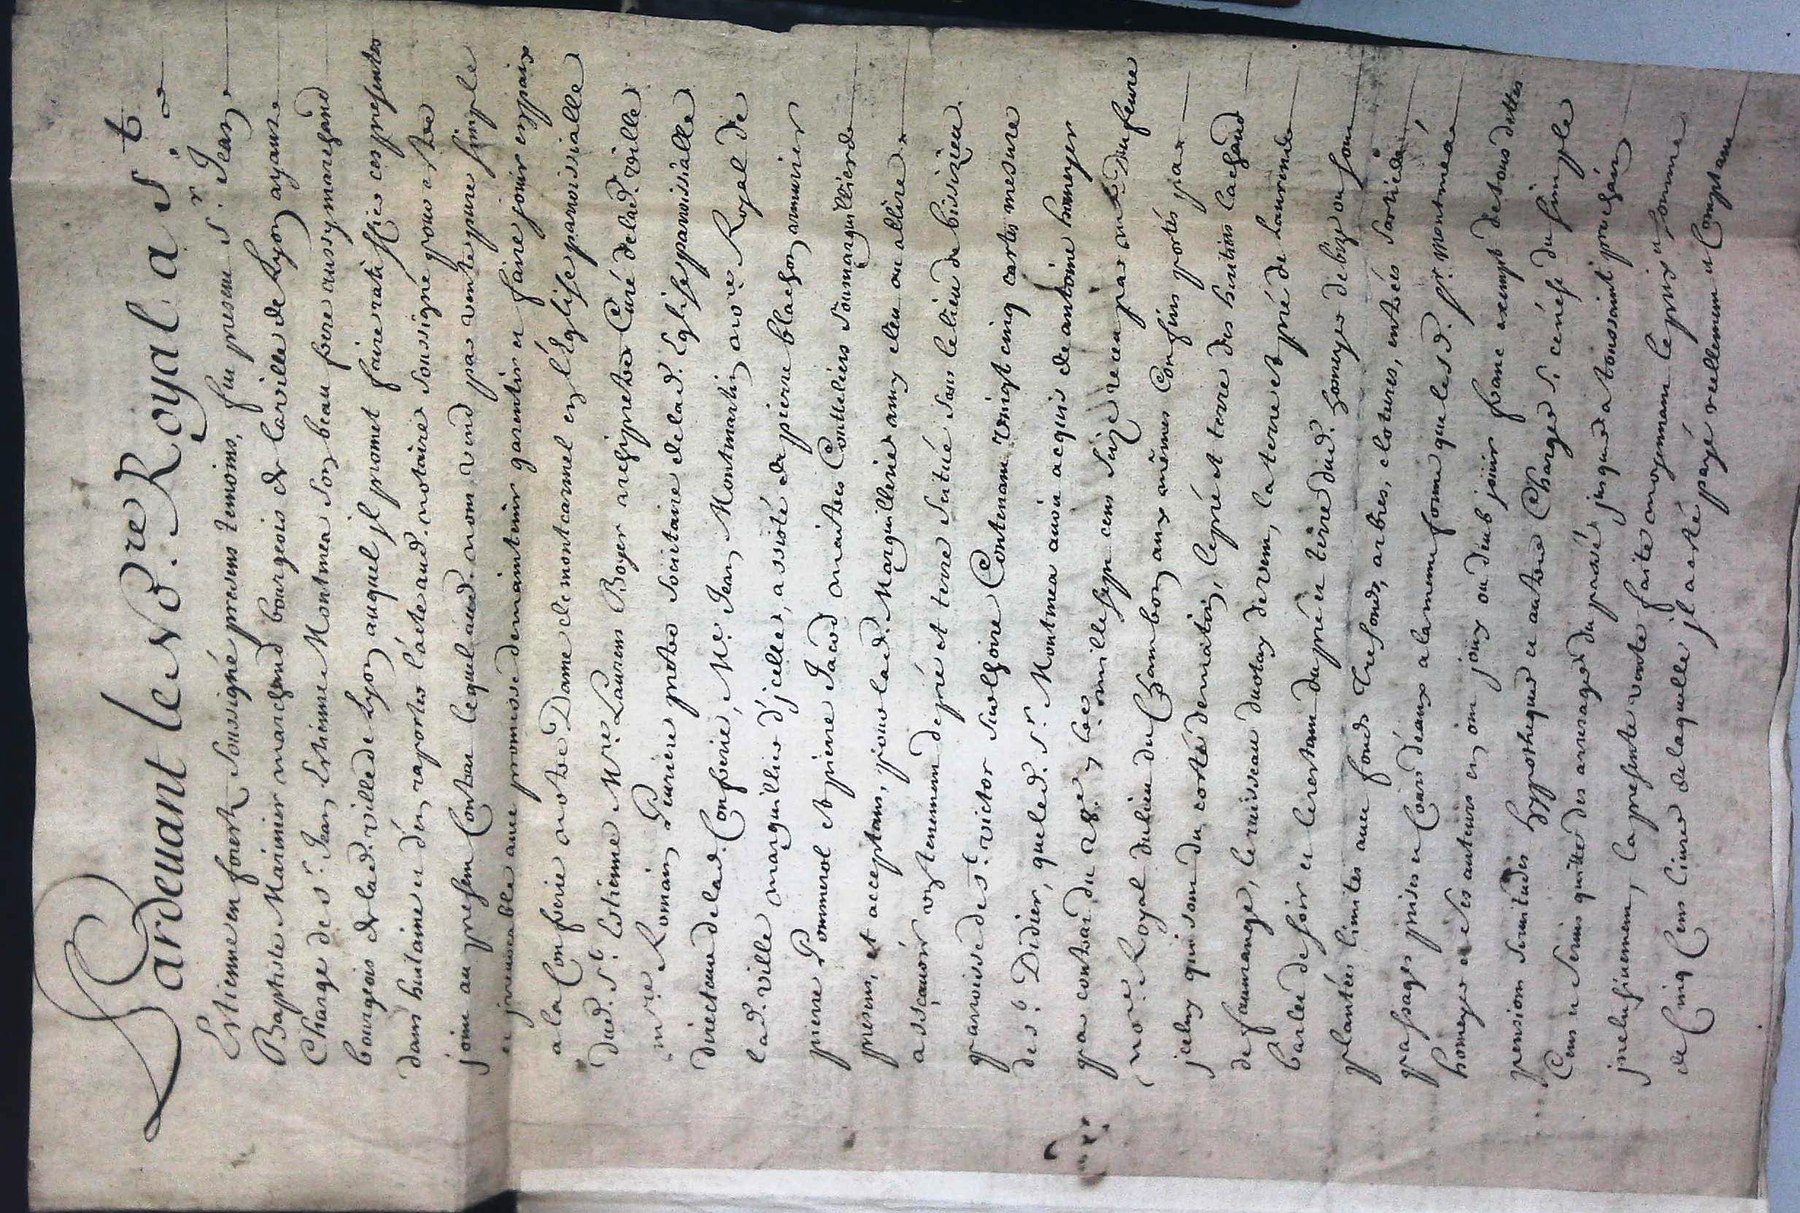 Pardeuant le No.re Royal a S.t
Estienne en forest, soussigné presens temoins, fut present s.r Jean
Baptiste Marinier marchand bourgeois de la ville de Lyon ayant
Charge de s.r Jean Estienne Montmea son beau frere aussy marchand
bourgeois de lad. ville de Lyon auquel jl promet faire ratiffier ces presentes
dans huitaine et d'en raporter l'acte aud. notaire soussigné pour estre
joint au present Contrat lequel aud. nom vend par vente pure simple
et jrreuocable auec promesse de maintenir garentir et faire jouir en paix
a la Confrerie notre Dame de montcarmel en l'Eglise paroissialle
dud. S.t Estienne M.re Laurens Boyer archiprestre Curé de lad. ville
m.re Romain Peuriere pretre societaire de lad. Eglise paroissialle
directeur de lad. Confrerie, M.e Jean Montmartin no.re Royal de
lad. ville marguillier d'jcelle, assisté de pierre blachon armurier
pierre Pommerol et pierre Jacod maitres Couteliers sousmarguilliers
presens, et acceptans, pour lad. Marguillerie amy eleu ou a elire
assçauoir un tenement de pré et terre situé sur le lieu de bissieu
parroisse de s.t victor sur loire Contenant vingt cinq cartes mesure
de s.t Didier, que led. s.r Montmea auoit acquis de antoine homeyer
par contrat du 28.e x.bre mille sept cens seize receu par m.e Dufeure
no.re Royal du lieu du Chambon aux mêmes Confins portés par
jceluy qui sont du costé de matin, le pré et terre des hoitiers lachaud
de faumange, le ruisseau du otay de vent, la terre et pré de laurent
barlet de soir et le restant du pré et terre dud. homeyer de bize ou sont
plantées limites auec fonds tresfonds, arbres, clotures, entrées sorties
passages prises et Cours d'eaux a la meme forme que led. s.r Montmea
homeyer et ses auteurs en ont jouy ou deub jouir franc exempt de tous dettes
pension seruitudes hyppotheques et autres Charges s. ceneste du simple
Cens et seruis quitte des arrerages du passé jusques a toussaint prochain
jnclusiuement, la presente vente faite moyennant le prix et somme
de Cinq Cens liures de laquelle jl a esté payé reellement et Comptant